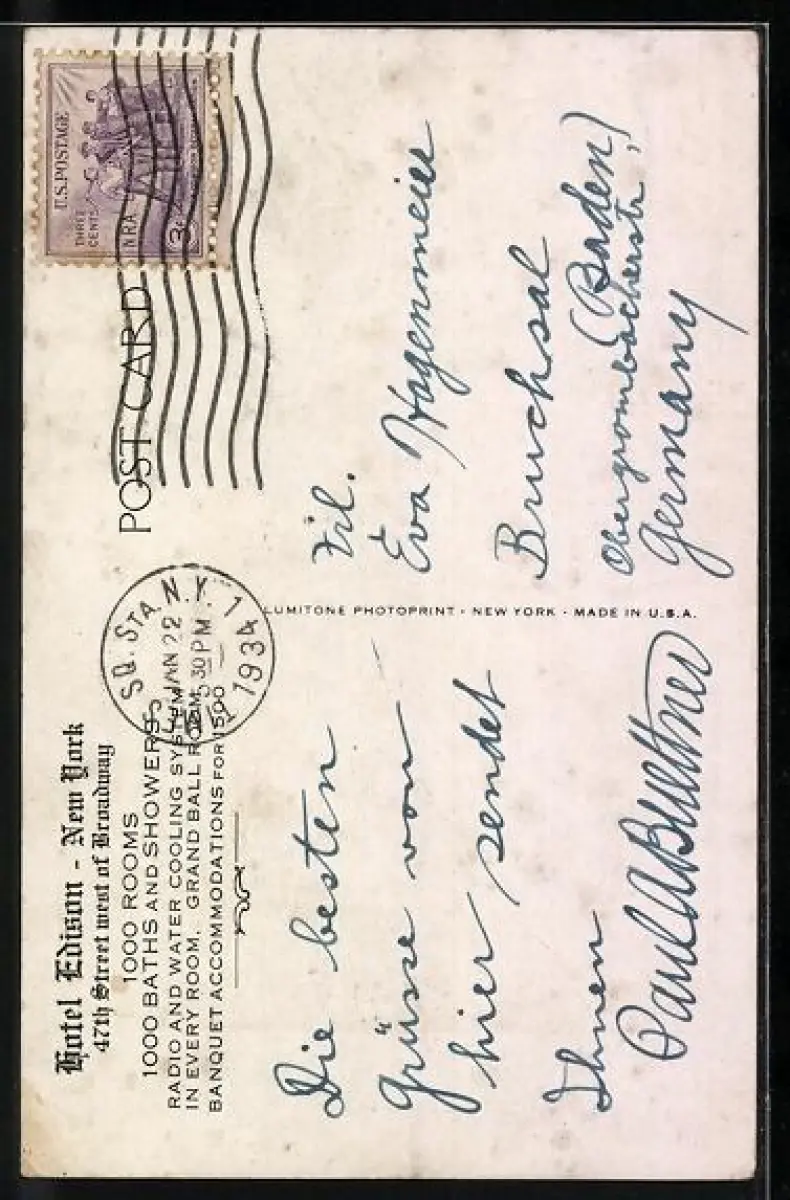 Hotel Edison - New York
47th Street west of Broadway
1000 ROOMS
1000 BATHS AND SHOWERS
RADIO AND WATER COOLING SYSTEM
IN EVERY ROOM. GRAND BALL ROOM,
BANQUET ACCOMMODATIONS FOR 1500
Die besten
Grüsse von
hier sendet
Ihnen
Paul A Buettner
LUMITONE PHOTOPRINT · NEW YORK · MADE IN U.S.A.
SQ. STA. N.Y. 1
JAN 22
30 PM
1934
POST CARD
U.S. POSTAGE
THREE CENTS
NRA
3¢
Frl.
Eva Hagenmeier
Bruchsal
(Baden)
Obergrombacherstr,
Germany